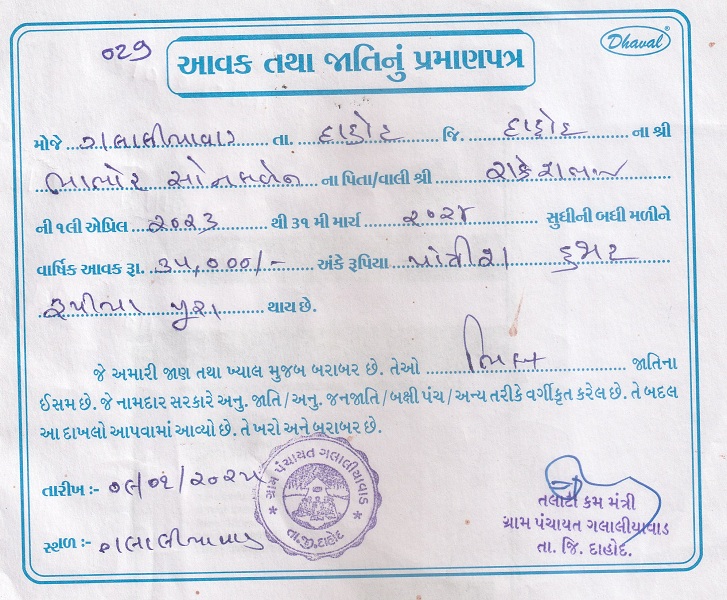 ૦૨૭
Dhaval
આવક તથા જાતિનું પ્રમાણપત્ર
મોજે ગલાલીયાવાડ તા. દાહોદ જિ. દાહોદ ના શ્રી
ભાભોર સોનલબેન ના પિતા/વાલી શ્રી રાકેશભાઈ
ની ૧લી એપ્રિલ ૨૦૨૩ થી ૩૧ મી માર્ચ ૨૦૨૪ સુધીની બધી મળીને
વાર્ષિક આવક રૂા. ૩૫,૦૦૦/- અંકે રૂપિયા પાંત્રીસ હજાર
રૂપીયા પુરા થાય છે.
જે અમારી જાણ તથા ખ્યાલ મુજબ બરાબર છે. તેઓ ભીલ જાતિના
ઈસમ છે. જે નામદાર સરકારે અનુ. જાતિ / અનુ. જનજાતિ / બક્ષી પંચ / અન્ય તરીકે વર્ગીકૃત કરેલ છે. તે બદલ
આ દાખલો આપવામાં આવ્યો છે. તે ખરો અને બરાબર છે.
તારીખ :- ૦૯/૦૧/૨૦૨૫
ગ્રામ પંચાયત ગલાલીયાવાડ
તા.જી.દાહોદ
તલાટી કમ મંત્રી
ગ્રામ પંચાયત ગલાલીયાવાડ
તા. જિ. દાહોદ.
સ્થળ :- ગલાલીયાવાડ